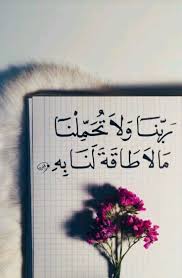 رَبَّنَا وَلاَ تُحَمِّلْنَا
مَا لاَ طَاقَةَ لَنَا بِهِ